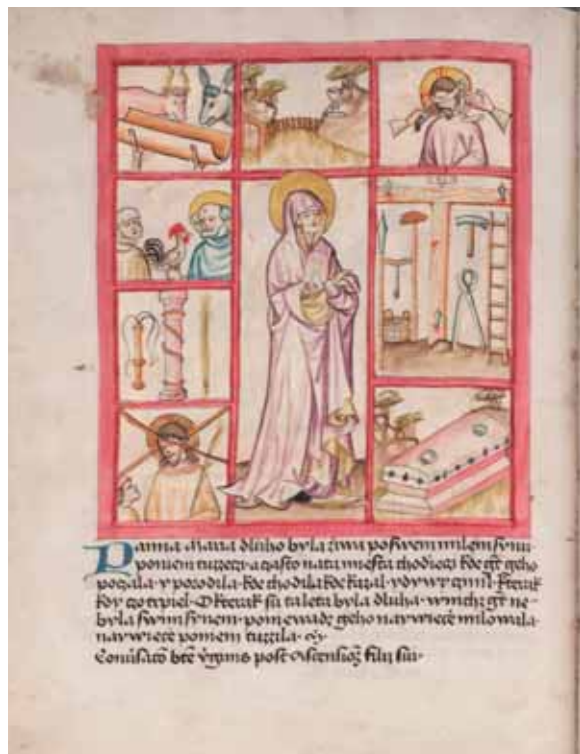 Panna Maria dluho byla ziwa poswem milem synu
poniem tuzieci a gasto nata miesta chodieci kde gt geho
pocala · y porodila · kde chodil a kde kazal · ydyw cinil ·
kdy co trpiel · O kterak su ta leta byla dluha · w nichz gt ne
byla swim synem · poniewadz geho naywiece milowala ·
naywiece poniem tuzila ·
bte virginis post Ascensioz filii sui ·